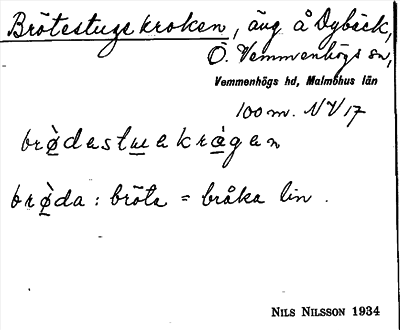 Brötestugskroken, äng å Dybäck,
Ö. Vemmenhögs sn,
Vemmenhögs hd, Malmöhus län
100 m. NV 17
brø̀dastuekrågen
brø̀da : bröta = bråka lin .
NILS NILSSON 1934